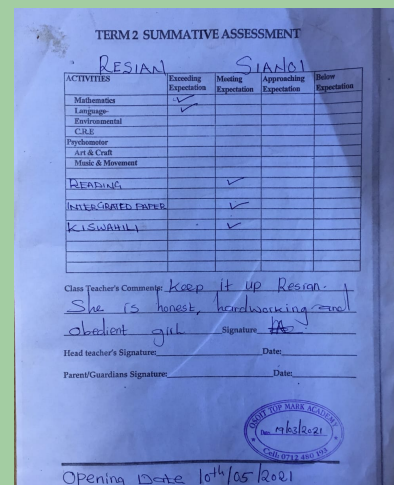 TERM 2 SUMMATIVE ASSESSMENT
RESIAN SIANOI
ACTIVITIES Exceeding Expectation Meeting Expectation Approaching Expectation Below Expectation
Mathematics ✓
Language- ✓
Environmental
C.R.E
Psychomotor
Art & Craft
Music & Movement
READING ✓
INTERGRATED PAPER ✓
KISWAHILI ✓
Class Teacher's Comments: Keep it up Resian.
She is honest, hardworking and
obedient girl Signature
Head teacher's Signature: Date:
Parent/Guardians Signature: Date:
TOP MARK ACADEMY
Date: 19/03/2021
Cell: 0712 480 193
Opening Date 10th/05/2021